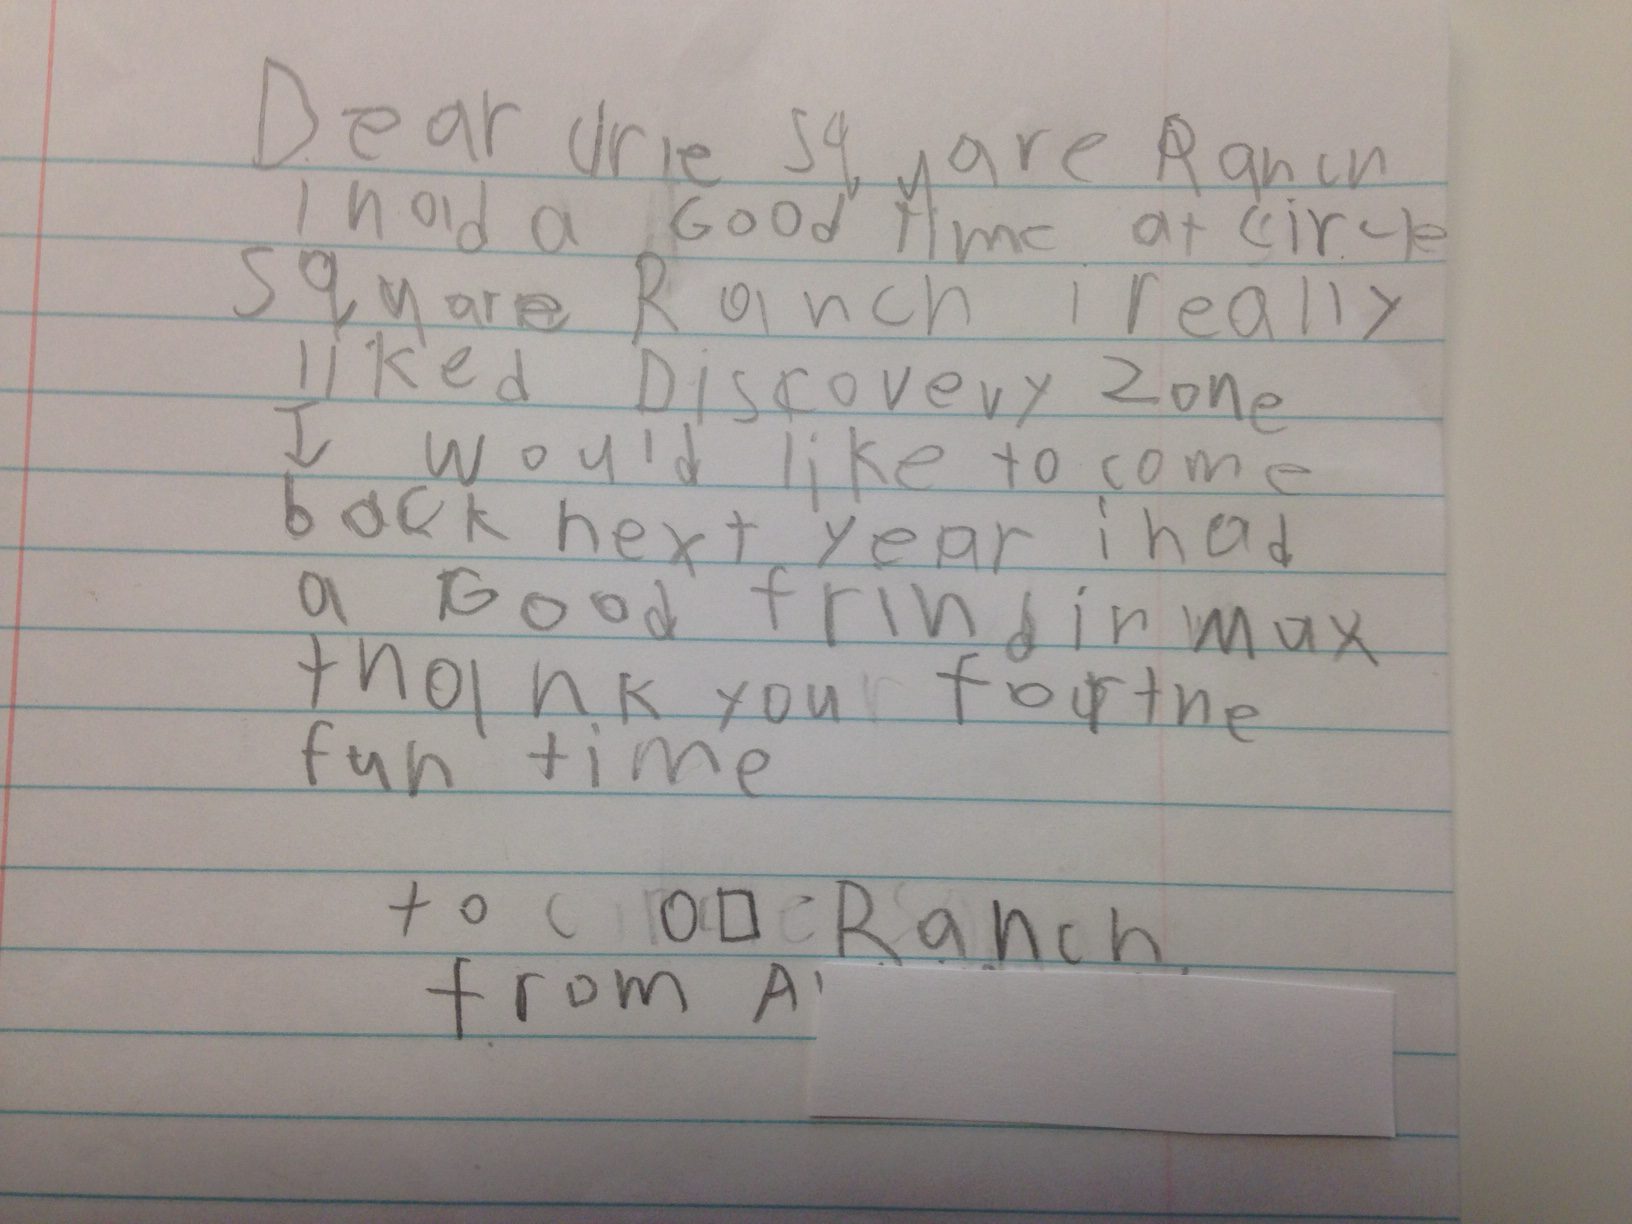 Dear Square Ranch
i had a Good time at circle
square Ranch i really
liked Discovery Zone
I would like to come
back next year i had
a Good frind in max
thank you for the
fun time
to O□ Ranch
from A